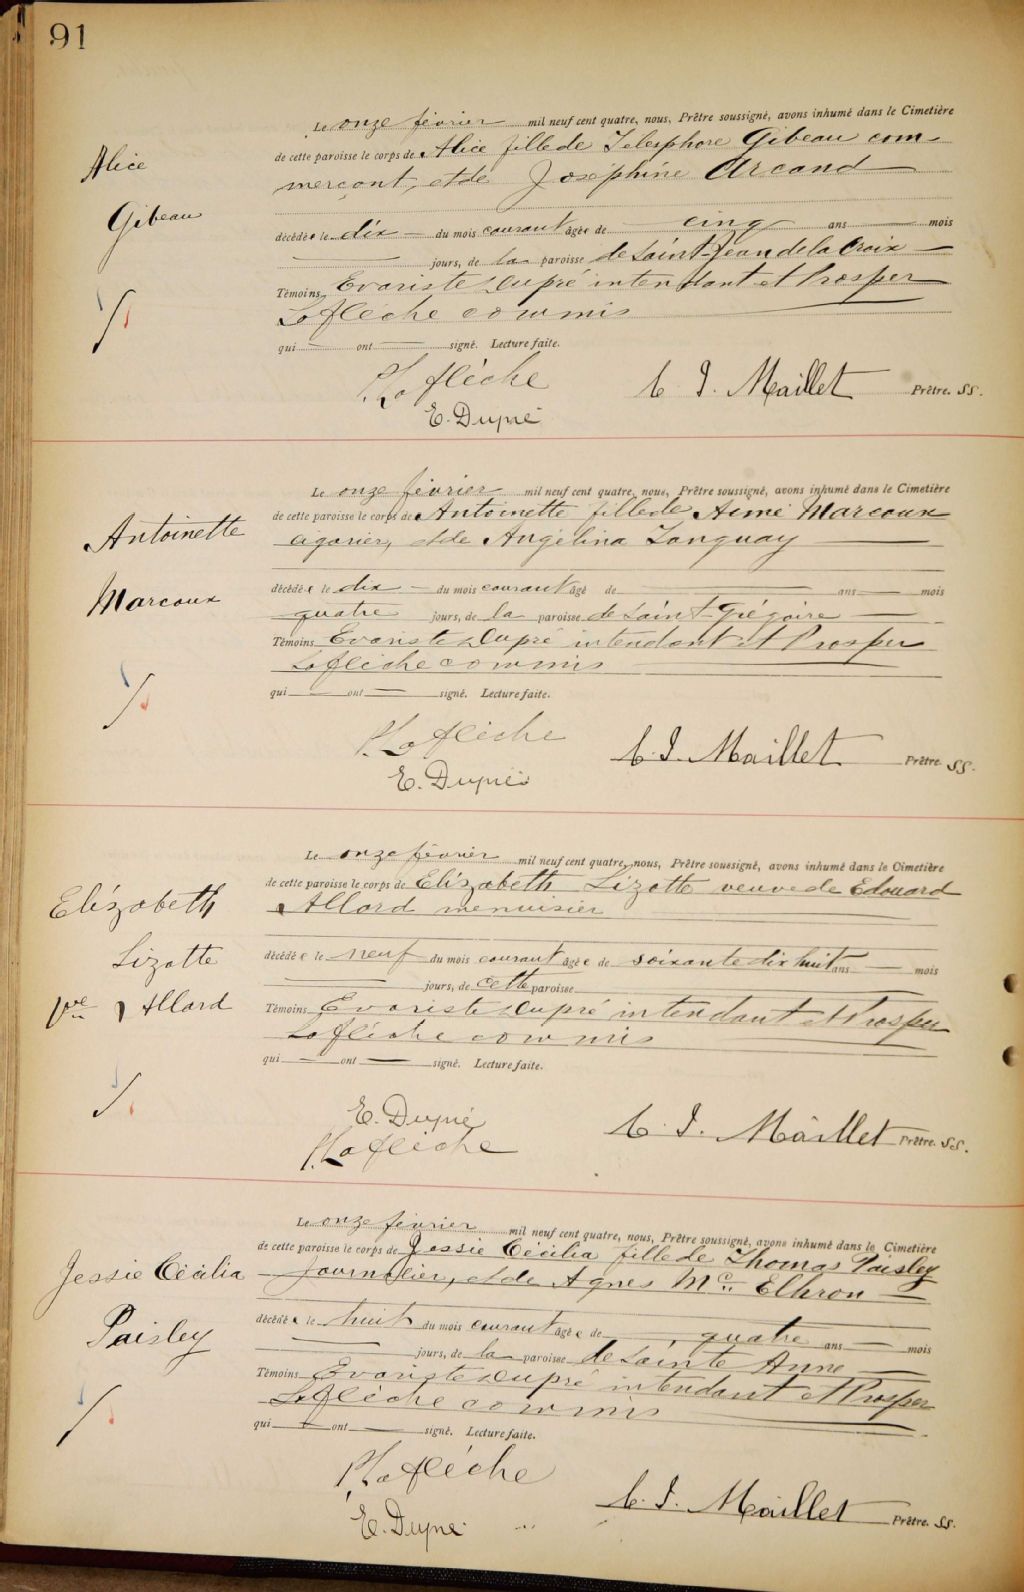 91
Le onze février mil neuf cent quatre, nous, Prêtre soussigné, avons inhumé dans le Cimetière
de cette paroisse le corps de Alice fille de Telesphore Gibeau com-
merçant, et de Joséphine Arcand
Alice
Gibeau
décédée le dix du mois courant âgée de cinq ans mois
jours, de la paroisse de Saint-Jean de la Croix
Témoins Evariste Dupré intendant et Prosper
Laflèche commis
qui ont signé. Lecture faite.
P. Laflèche
C. J. Maillet Prêtre. SS.
E. Dupré
Le onze février mil neuf cent quatre, nous, Prêtre soussigné, avons inhumé dans le Cimetière
de cette paroisse le corps de Antoinette fille de Aimé Marcoux
cigarier, et de Angélina Tanguay
Antoinette
Marcoux
décédée le dix du mois courant âgé de ans mois
quatre jours, de la paroisse de Saint-Grégoire
Témoins Evariste Dupré intendant et Prosper
Laflèche commis
qui ont signé. Lecture faite.
P. Laflèche
C. J. Maillet Prêtre SS.
E. Dupré
Le onze février mil neuf cent quatre, nous, Prêtre soussigné, avons inhumé dans le Cimetière
de cette paroisse le corps de Elizabeth Lizotte veuve de Edouard
Allard menuisier
Elizabeth
Lizotte
Vve Allard
décédée le neuf du mois courant âgée de soixante dix huit ans mois
jours, de cette paroisse
Témoins Evariste Dupré intendant et Prosper
Laflèche commis
qui ont signé. Lecture faite.
E. Dupré
C. J. Maillet Prêtre. SS.
P. Laflèche
Le onze février mil neuf cent quatre, nous, Prêtre soussigné, avons inhumé dans le Cimetière
de cette paroisse le corps de Jessie Cécilia fille de Thomas Paisley
journalier, et de Agnes Mc Elhron
Jessie Cécilia
Paisley
décédée le huit du mois courant âgée de quatre ans mois
jours, de la paroisse de Sainte Anne
Témoins Evariste Dupré intendant et Prosper
Laflèche commis
qui ont signé. Lecture faite.
P. Laflèche
C. J. Maillet Prêtre. SS.
E. Dupré